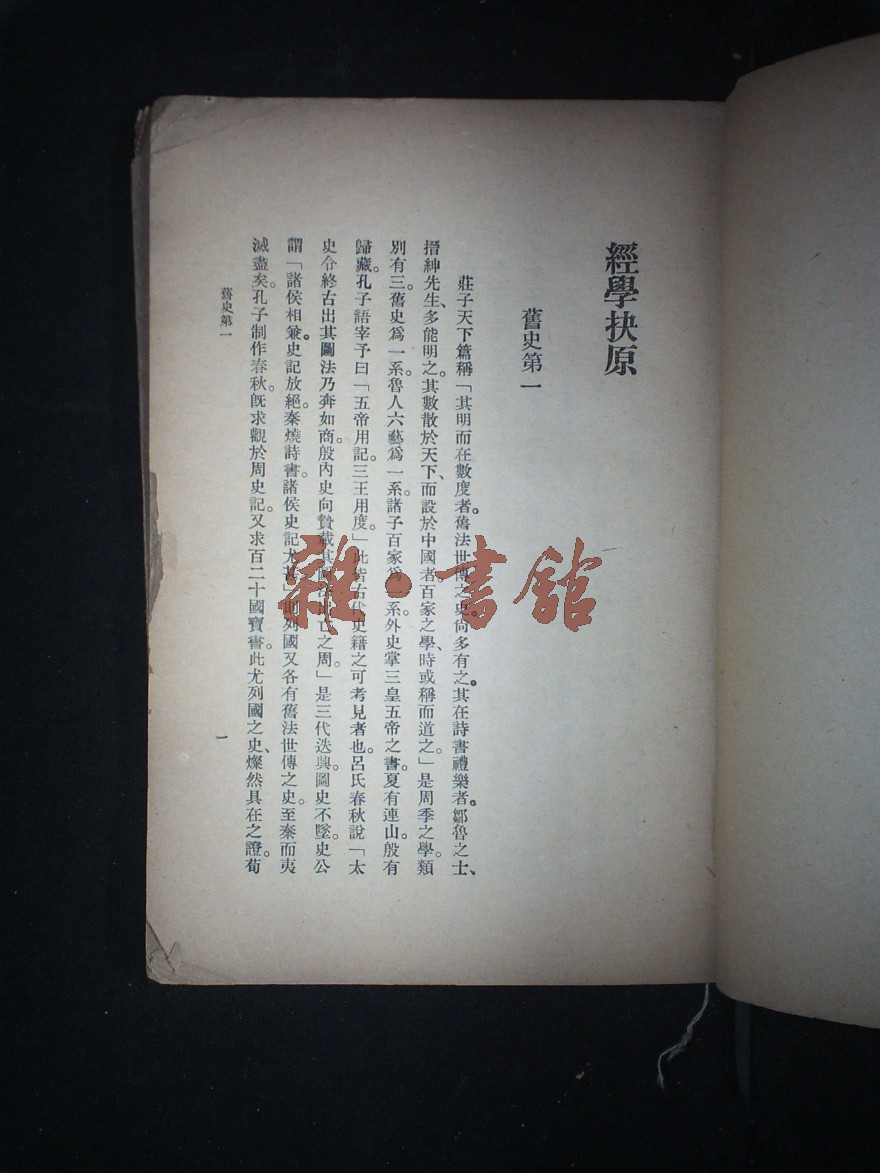 經學抉原
舊史第一
莊子天下篇稱「其明而在數度者。舊法世傳之史。尙多有之。其在詩書禮樂者。鄒魯之士、
搢紳先生、多能明之。其數散於天下、而設於中國者百家之學、時或稱而道之。」是周季之學。類
別有三。舊史爲一系。魯人六藝爲一系。諸子百家爲一系。外史掌三皇五帝之書。夏有連山。殷有
歸藏。孔子語宰予曰「五帝用記。三王用度。」此皆古代史籍之可考見者也。呂氏春秋說「太
史令終古出其圖法乃奔如商。殷內史向摯載其圖法出亡之周。」是三代迭興。圖史不墜。史公
謂「諸侯相兼。史記放絕。秦燒詩書。諸侯史記尤甚」則列國又各有舊法世傳之史。至秦而夷
滅盡矣。孔子制作春秋。旣求觀於周史記。又求百二十國寶書。此尤列國之史、燦然具在之證。荀
舊史第一
一
雜·書館